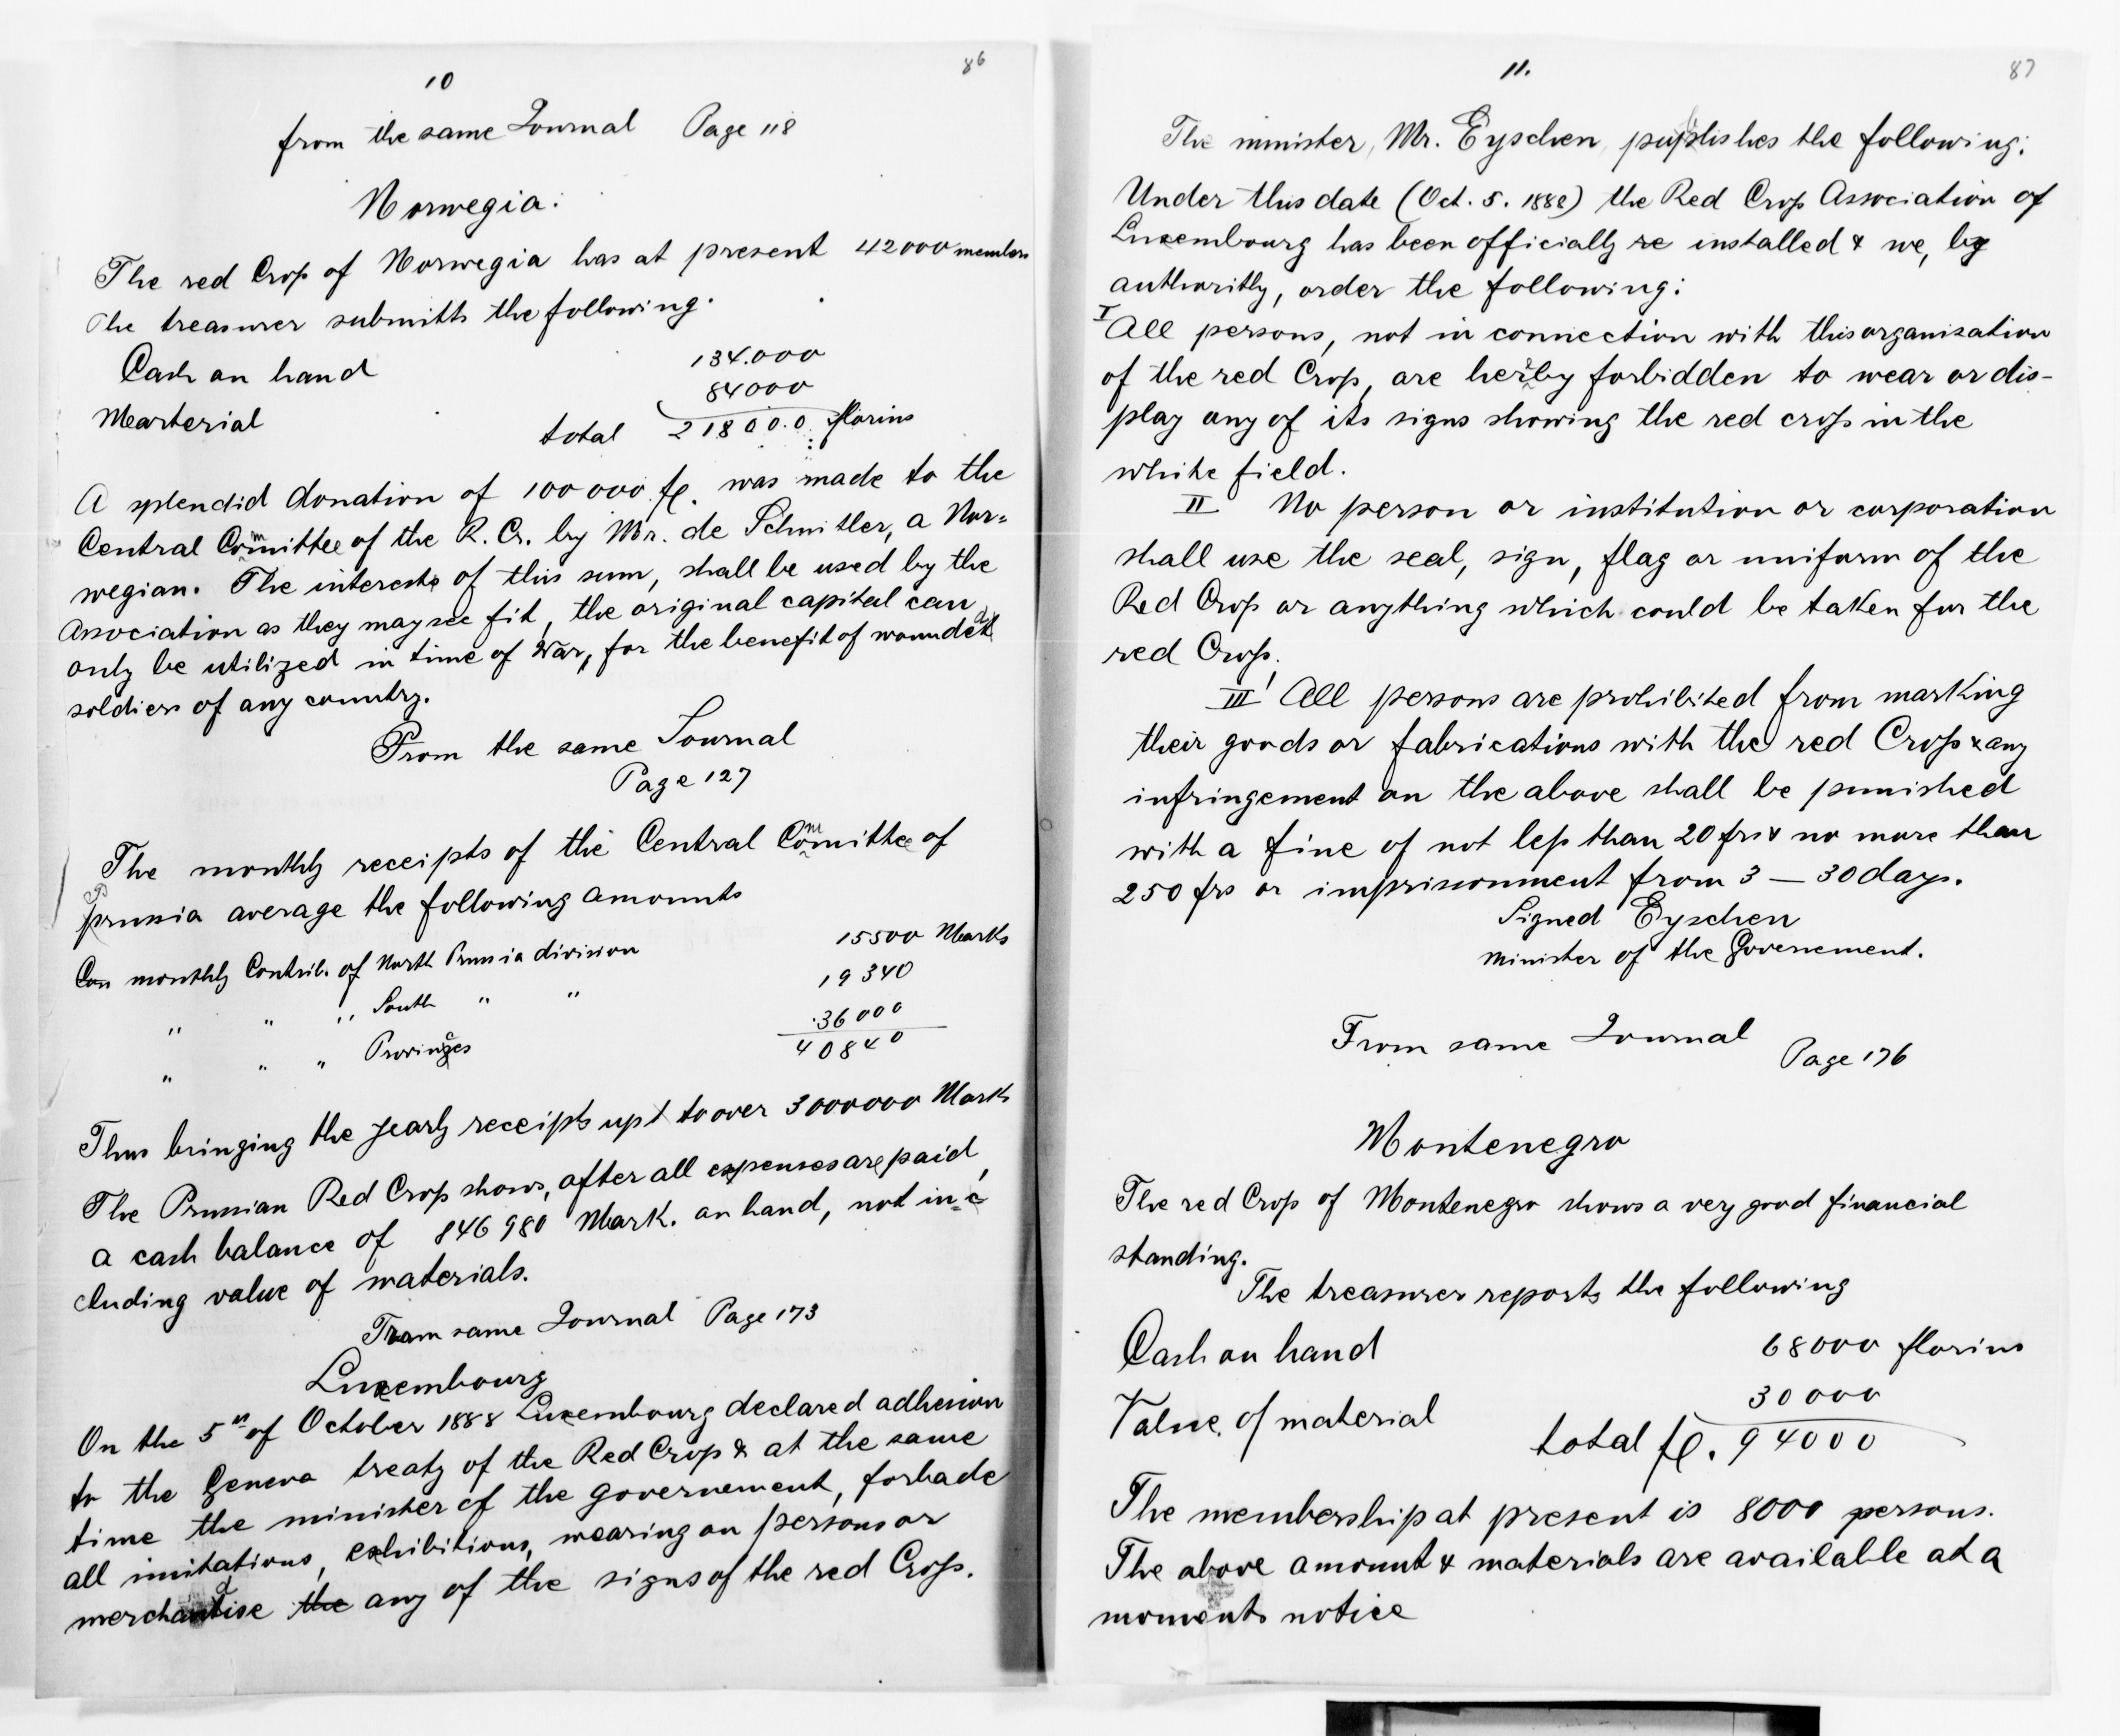 10
86
from the same Journal Page 118
Norwegia:
The red Cross of Norwegia has at present 42000 members
The treasurer submitts the following.
Cash on hand 134.000
Marterial 84000
total 218000 florins
A splendid donation of 100000 fl. was made to the
Central Committee of the R. Cr. by Mr. de Schnitler, a Nor=
wegian. The interests of this sum, shall be used by the
Association as they may see fit, the original capital can
only be utilized in time of War, for the benefit of wounded
soldiers of any country.
From the same Journal
Page 127
The monthly receipts of the Central Committee of
Prussia average the following amounts
Con monthly Contrib. of North Prussia division 15500 Marks
" " " South " " 19340
" " " Provinces 36000
40840
Thus bringing the yearly receipts up to over 3000000 Mark
The Prussian Red Cross shows, after all expenses are paid,
a cash balance of 846980 Mark. on hand, not in=
cluding value of materials.
From same Journal Page 173
Luxembourg
On the 5th of October 1888 Luxembourg declared adhesion
to the Geneva treaty of the Red Cross & at the same
time the minister of the governement, forbade
all imitations, exhibitions, wearing on persons or
merchantise the any of the signs of the red Cross.
11.
87
The minister, Mr. Eyschen, puplishes the following:
Under this date (Oct. 5. 1888) the Red Cross Association of
Luxembourg has been officially re installed & we, by
authority, order the following:
I All persons, not in connection with this organisation
of the red Cross, are hereby forbidden to wear or dis-
play any of its signs showing the red cross in the
white field.
II No person or institution or corporation
shall use the seal, sign, flag or uniform of the
Red Cross or anything which could be taken for the
red Cross.
III All persons are prohibited from marking
their goods or fabrications with the red Cross & any
infringement on the above shall be punished
with a fine of not less than 20 frs & no more than
250 frs or imprisonment from 3 — 30 days.
Signed Eyschen
minister of the Governement.
From same Journal
Page 176
Montenegro
The red Cross of Montenegro shows a very good financial
standing.
The treasurer reports the following
Cash on hand 68000 florins
Value of material 30000
total fl. 94000
The membership at present is 8000 persons.
The above amount & materials are available at a
moments notice